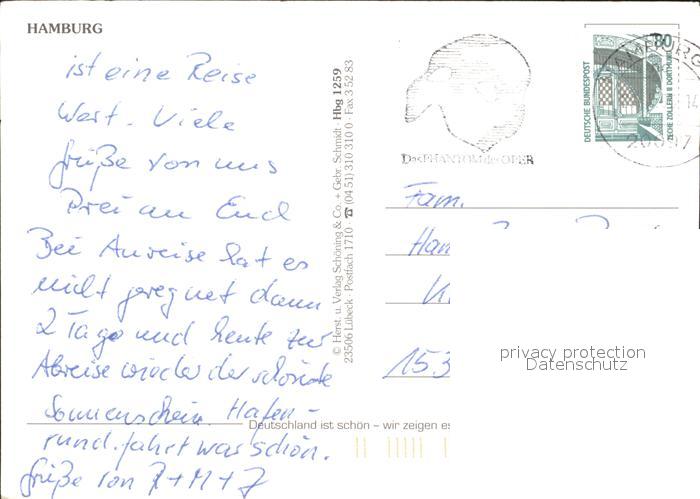 HAMBURG
ist eine Reise
Wert. Viele
Grüße von uns
Drei an Euch
Bei Anreise hat es
nicht geregnet dann
2 Tage und heute zur
Abreise wieder der schönste
Sonnenschein. Hafen-
rund.fahrt war schön.
Grüße von R+M+J
© Herst. u. Verlag Schöning & Co. + Gebr. Schmidt · Hbg 1259
23506 Lübeck · Postfach 1710 · ☎ (04 51) 310 310 0 · Fax 3 52 83
Das PHANTOM der OPER
80
DEUTSCHE BUNDESPOST
ZECHE ZOLLERN II DORTMUND
HAMBURG
14
20097
Fam.
Han
15.3
privacy protection
Datenschutz
Deutschland ist schön – wir zeigen es